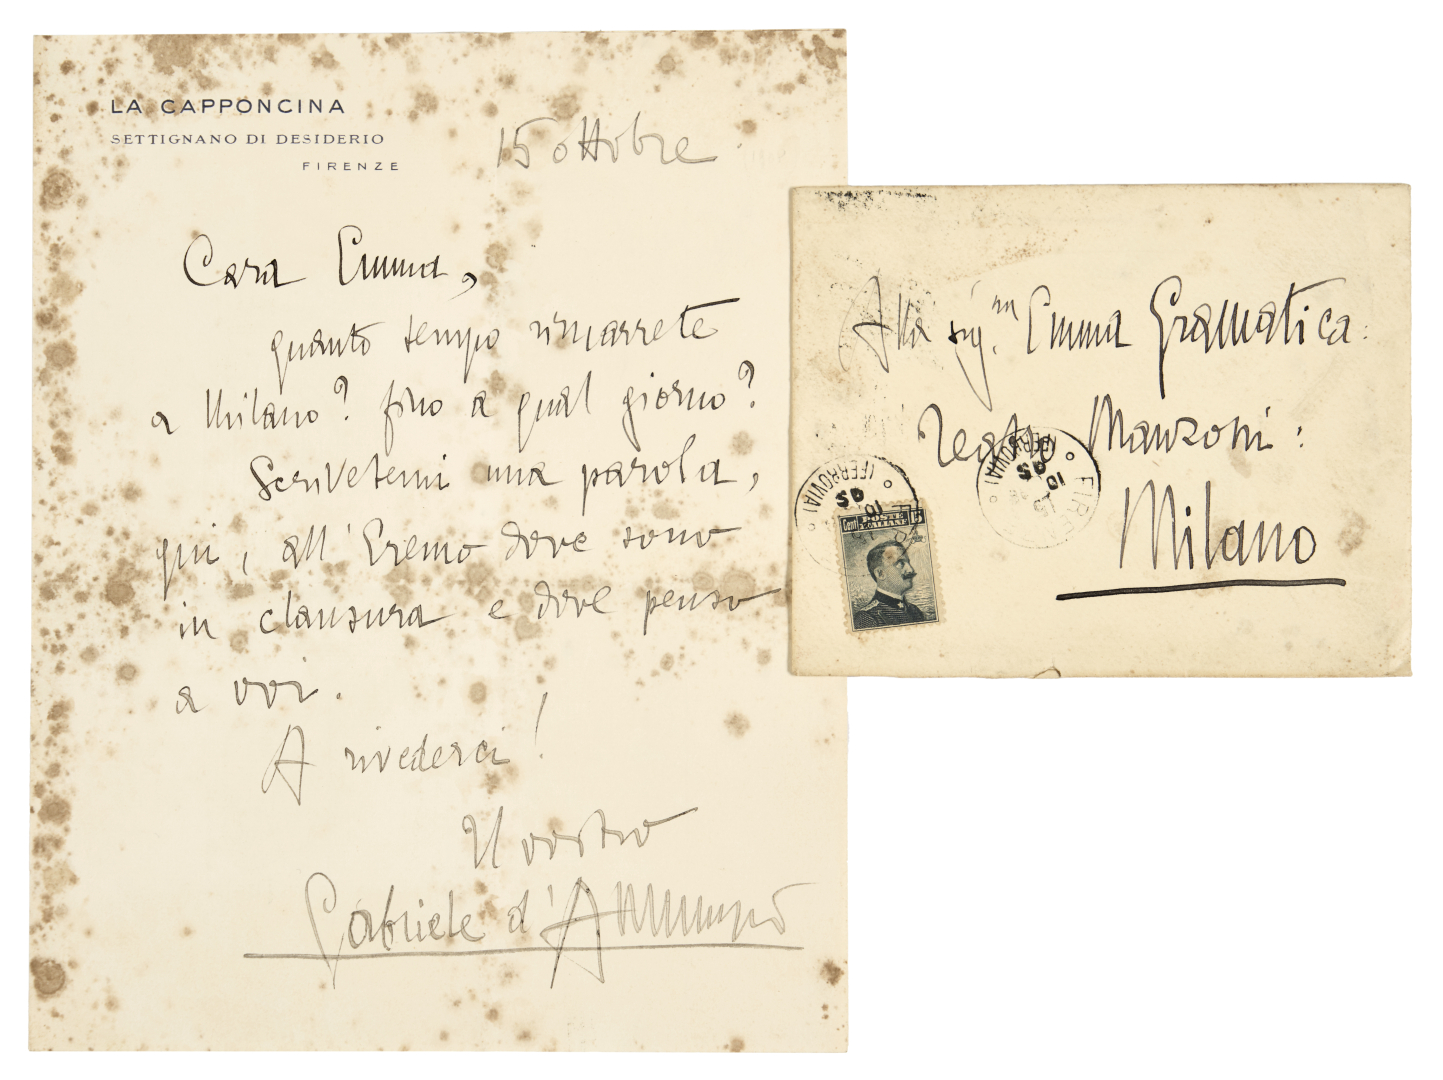 LA CAPPONCINA
SETTIGNANO DI DESIDERIO
FIRENZE
15 ottobre
Cara Emma,
quanto tempo rimarrete
a Milano? fino a qual giorno?
Scrivetemi una parola,
qui, all'Eremo dove sono
in clausura e dove penso
a voi.
A rivederci!
Il vostro
Gabriele d'Annunzio
Alla sig.ra Emma Gramatica:
Teatro Manzoni:
Milano
(FERROVIA)
10 05
Cent POSTE ITALIANE 15
FIRENZE
(FERROVIA)
15
10 05